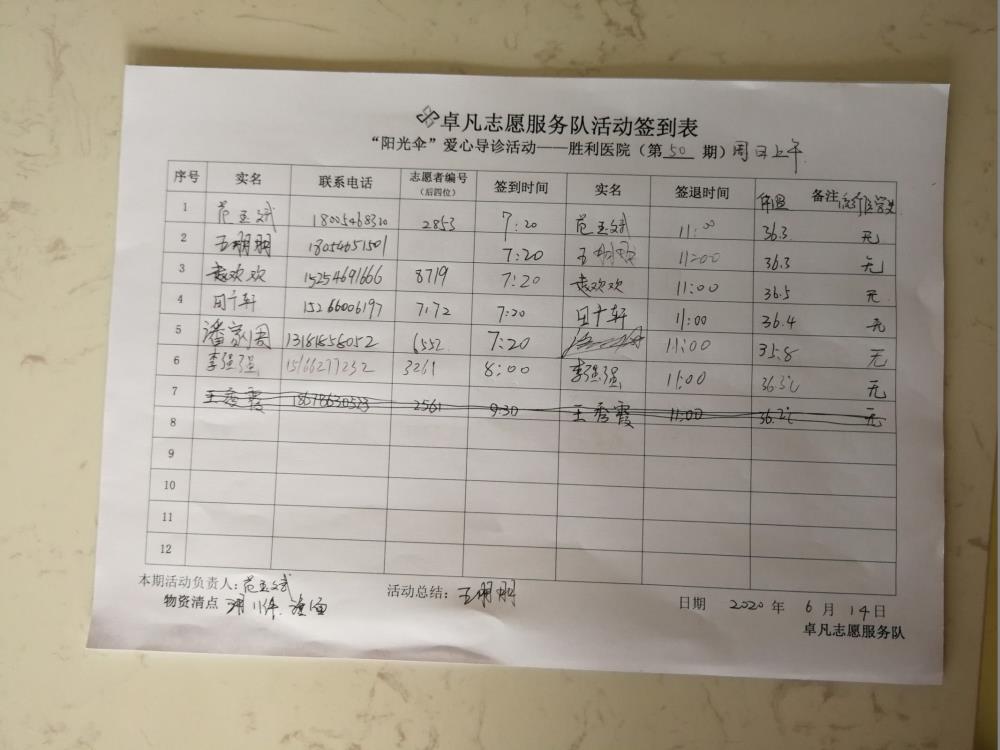 卓凡志愿服务队活动签到表
“阳光伞”爱心导诊活动——胜利医院（第 50 期）周日上午
序号 实名 联系电话 志愿者编号（后四位） 签到时间 实名 签退时间 体温 备注
1 范玉斌 18005468320 2853 7:20 范玉斌 11:00 36.3 无
2 王朋朋 18054651501 7:20 王朋朋 11:00 36.3 无
3 袁欢欢 15254691666 8719 7:20 袁欢欢 11:00 36.5 无
4 田广轩 15266006197 7172 7:20 田广轩 11:00 36.4 无
5 潘家国 13181856052 6552 7:20 11:00 35.8 无
6 李强强 15166277232 3261 8:00 李强强 11:00 36.3℃ 无
7 王秀霞 18678630523 2561 9:30 王秀霞 11:00 36.2℃ 无
8
9
10
11
12
本期活动负责人：范玉斌 活动总结：王朋朋
物资清点 日期 2020 年 6 月 14 日
卓凡志愿服务队